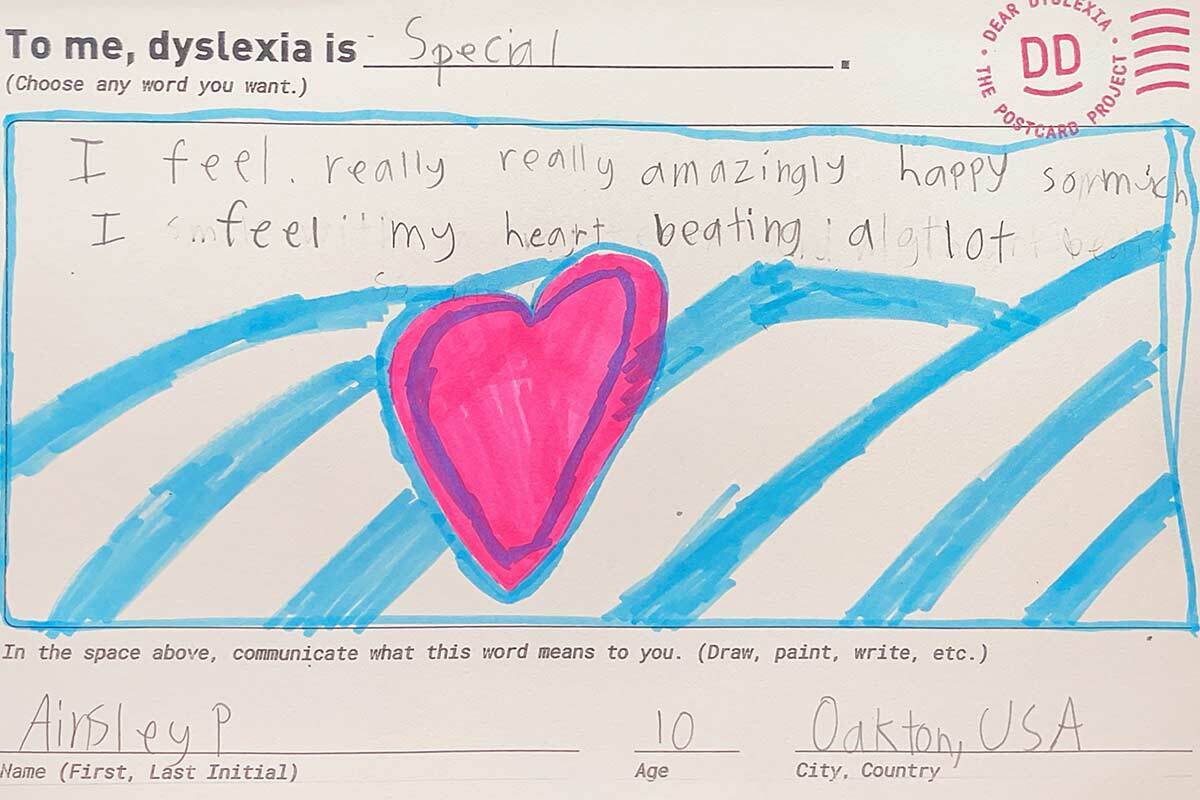 To me, dyslexia is Special.
(Choose any word you want.)
DEAR DYSLEXIA • THE POSTCARD PROJECT •
DD
I feel. really really amazingly happy so much
I feel my heart beating a lot
In the space above, communicate what this word means to you. (Draw, paint, write, etc.)
Ainsley P 10 Oakton, USA
Name (First, Last Initial) Age City, Country